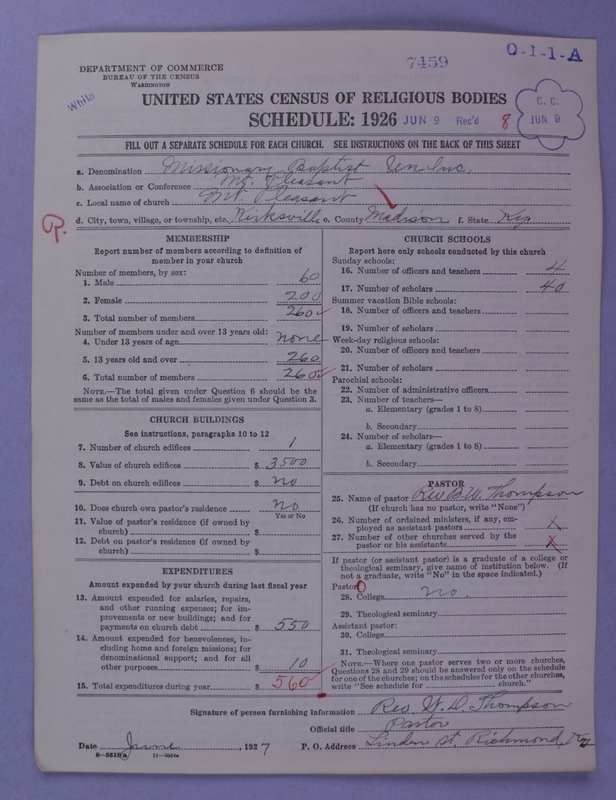 O-1-1-A
7459
DEPARTMENT OF COMMERCE
BUREAU OF THE CENSUS
WASHINGTON
White
UNITED STATES CENSUS OF RELIGIOUS BODIES
SCHEDULE: 1926 JUN 9 Rec'd 8
C. C.
JUN 9
FILL OUT A SEPARATE SCHEDULE FOR EACH CHURCH. SEE INSTRUCTIONS ON THE BACK OF THIS SHEET
a. Denomination Missionary Baptist Inc.
b. Association or Conference Mt. Pleasant
c. Local name of church Mt. Pleasant
d. City, town, village, or township, etc. Kirksville e. County Madison f. State Ky.
R.
MEMBERSHIP
Report number of members according to definition of
member in your church
Number of members, by sex:
1. Male 60
2. Female 200
3. Total number of members 260
Number of members under and over 13 years old:
4. Under 13 years of age none
5. 13 years old and over 260
6. Total number of members 260
NOTE.—The total given under Question 6 should be the
same as the total of males and females given under Question 3.
CHURCH BUILDINGS
See instructions, paragraphs 10 to 12
7. Number of church edifices 1
8. Value of church edifices $ 3500
9. Debt on church edifices $ no
10. Does church own pastor's residence no
Yes or No
11. Value of pastor's residence (if owned by
church) $
12. Debt on pastor's residence (if owned by
church) $
EXPENDITURES
Amount expended by your church during last fiscal year
13. Amount expended for salaries, repairs,
and other running expenses; for im-
provements or new buildings; and for
payments on church debt $ 550
14. Amount expended for benevolences, in-
cluding home and foreign missions; for
denominational support; and for all
other purposes $ 10
15. Total expenditures during year $ 560
CHURCH SCHOOLS
Report here only schools conducted by this church
Sunday schools:
16. Number of officers and teachers 4
17. Number of scholars 40
Summer vacation Bible schools:
18. Number of officers and teachers
19. Number of scholars
Week-day religious schools:
20. Number of officers and teachers
21. Number of scholars
Parochial schools:
22. Number of administrative officers
23. Number of teachers—
a. Elementary (grades 1 to 8)
b. Secondary
24. Number of scholars—
a. Elementary (grades 1 to 8)
b. Secondary
PASTOR
25. Name of pastor Rev B. W. Thompson
(If church has no pastor, write "None")
26. Number of ordained ministers, if any, em-
ployed as assistant pastors x
27. Number of other churches served by the
pastor or his assistants x
If pastor (or assistant pastor) is a graduate of a college or
theological seminary, give name of institution below. (If
not a graduate, write "No" in the space indicated.)
Pastor:
28. College no.
29. Theological seminary
Assistant pastor:
30. College
31. Theological seminary
NOTE.—Where one pastor serves two or more churches,
Questions 28 and 29 should be answered only on the schedule
for one of the churches; on the schedules for the other churches,
write "See schedule for church."
Signature of person furnishing information Rev. W. D. Thompson
Official title Pastor
Date June, 1927 P. O. Address Linden St. Richmond, Ky
8—5519a 11—9064a